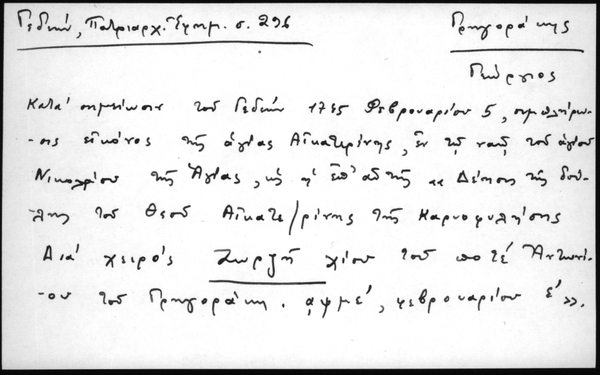 Γεδεών, Πατριαρχ. Ἐφημ. σ. 296
Γρηγοράκης
Γεώργιος
Κατά σημείωσιν τοῦ Γεδεών 1745 Φεβρουαρίου 5,
-σις εἰκόνος τῆς ἁγίας Αἰκατερίνης, ἐν τῷ ναῷ τοῦ ἁγίου
Νικολάου τῆς Ἁγίας, ἐπ' αὐτῆς «Δέησις τῆς δού-
λης τοῦ Θεοῦ Αἰκατε/ρίνης τῆς Καρυοφυλλῆσης
Διά χειρός Ζωρζῆ χίου τοῦ ποτέ Ἀντωνί-
-ου τοῦ Γρηγοράκη. αψμε', φεβρουαρίου ε'».